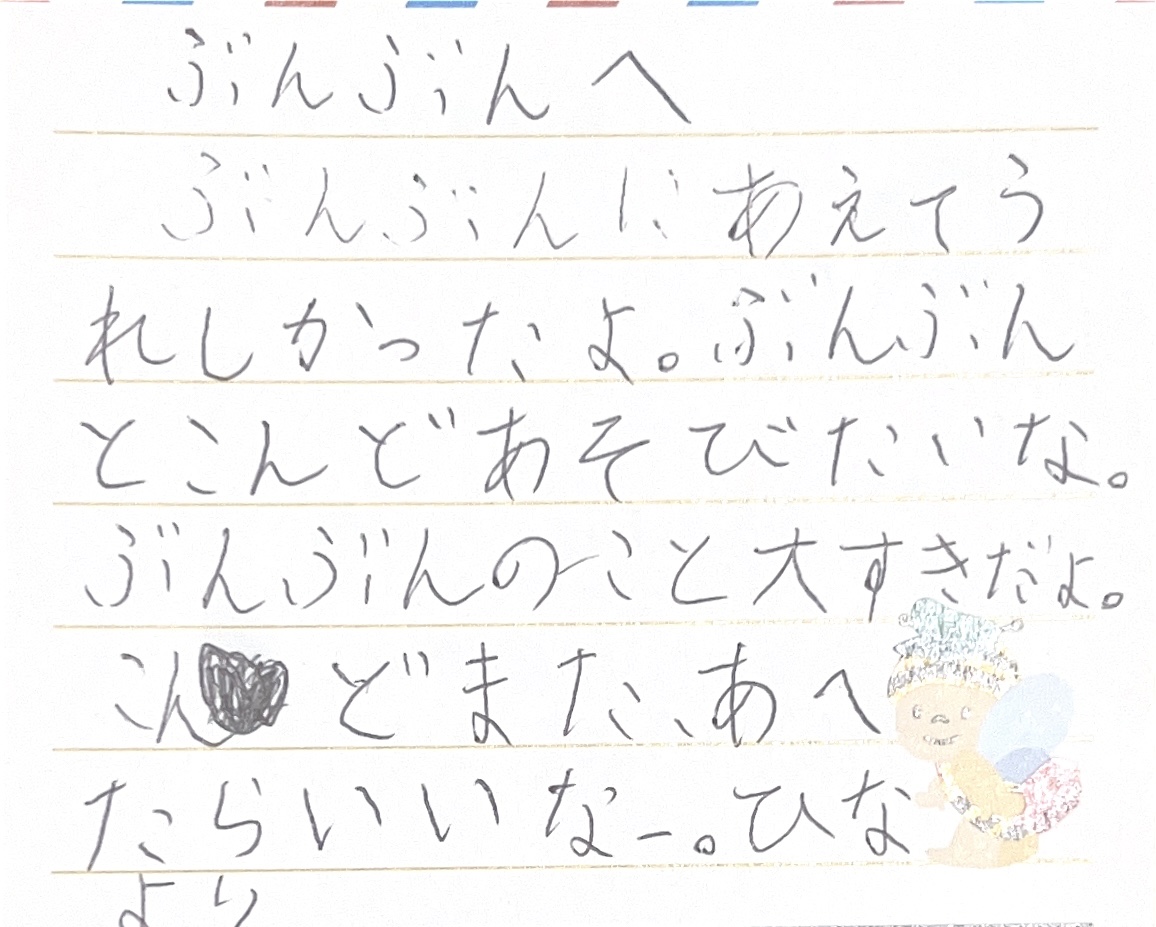 ぶんぶんへ
ぶんぶんにあえてう
れしかったよ。ぶんぶん
とこんどあそびたいな。
ぶんぶんのこと大すきだよ。
こんどまた、あへ
たらいいなー。ひな
より